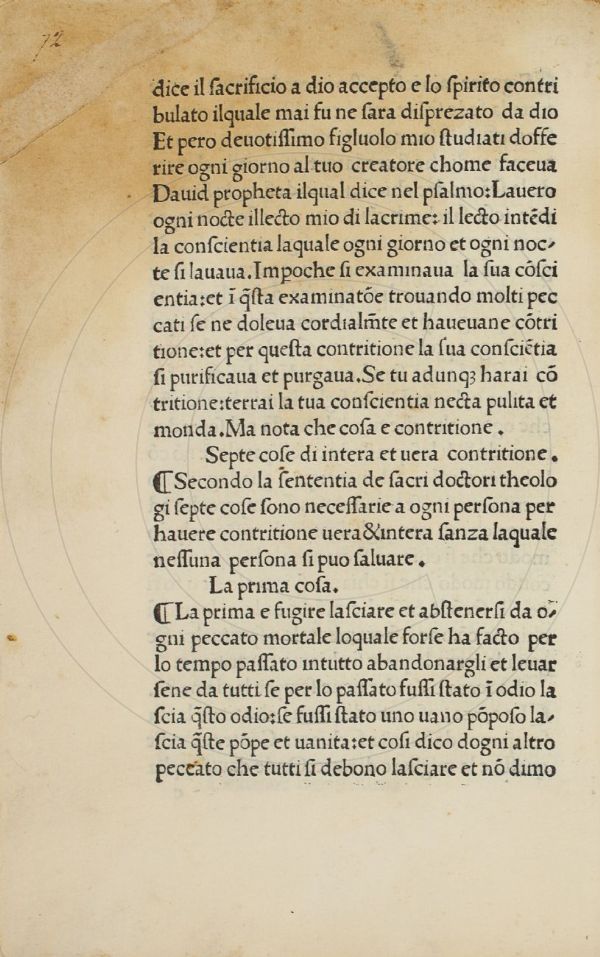 72
dice il ſacrificio a dio accepto e lo ſpirito contri
bulato ilquale mai fu ne ſara diſprezato da dio
Et pero deuotiſſimo figluolo mio ſtudiati doffe
rire ogni giorno al tuo creatore chome faceua
Dauid propheta ilqual dice nel pſalmo:Lauero
ogni nocte illecto mio di lacrime: il lecto intẽdi
la conſcientia laquale ogni giorno et ogni noc-
te ſi lauaua.Impoche ſi examinaua la ſua cõſci
entia:et ĩ q̃ſta examinatõe trouando molti pec
cati ſe ne doleua cordialm̃te et haueuane cõtri
tione:et per queſta contritione la ſua conſciẽtia
ſi purificaua et purgaua.Se tu adunqꝫ harai cõ
tritione:terrai la tua conſcientia necta pulita et
monda.Ma nota che coſa e contritione.
Septe coſe di intera et uera contritione.
¶Secondo la ſententia de ſacri doctori theolo
gi ſepte coſe ſono neceſſarie a ogni perſona per
hauere contritione uera&intera ſanza laquale
neſſuna perſona ſi puo ſaluare.
La prima coſa.
¶La prima e fugire laſciare et abſtenerſi da o-
gni peccato mortale loquale forſe ha facto per
lo tempo paſſato intutto abandonargli et leuar
ſene da tutti ſe per lo paſſato fuſſi ſtato ĩ odio la
ſcia q̃ſto odio:ſe fuſſi ſtato uno uano põpoſo la-
ſcia q̃ſte põpe et uanita:et coſi dico dogni altro
peccato che tutti ſi debono laſciare et nõ dimo